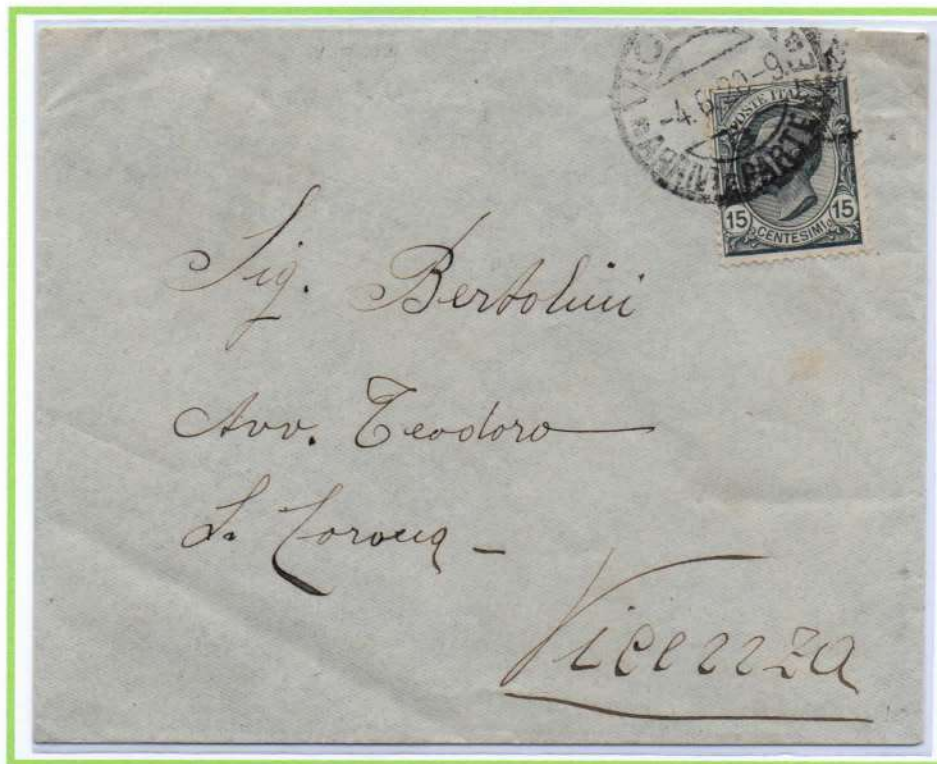 -4.6.20-9
ARRIVI E PARTENZE
POSTE ITAL
15 15
CENTESIMI
Sig. Bertolini
Avv. Teodoro
S. Corona -
Vicenza